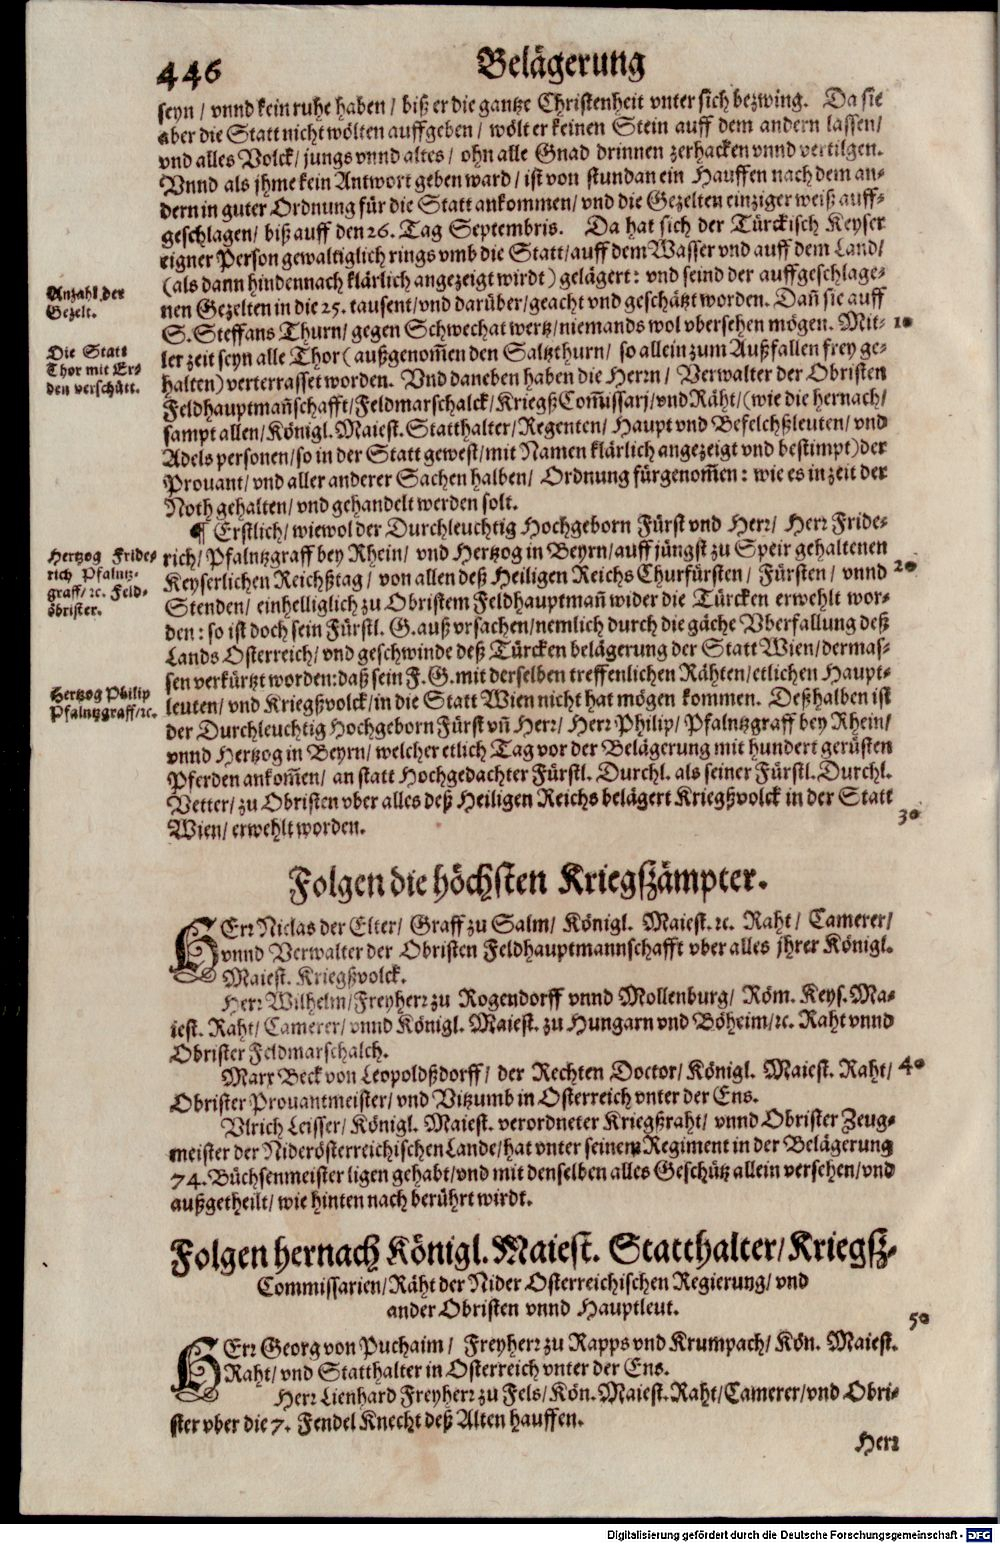 446 Belägerung
seyn / vnnd kein ruhe haben / biß er die gantze Christenheit vnter sich bezwing. Da sie
aber die Statt nicht wölten auffgeben / wölt er keinen Stein auff dem andern lassen /
vnd alles Volck / jungs vnnd altes / ohn alle Gnad drinnen zerhacken vnnd vertilgen.
Vnnd als jhme kein Antwort geben ward / ist von stundan ein Hauffen nach dem an-
dern in guter Ordnung für die Statt ankommen / vnd die Gezelten einziger weiß auff-
geschlagen / biß auff den 26. Tag Septembris. Da hat sich der Türckisch Keyser
eigner Person gewaltiglich rings vmb die Statt / auff dem Wasser vnd auff dem Land /
(als dann hindennach klärlich angezeigt wirdt) gelägert: vnd seind der auffgeschlage-
Anzahl der
Gezelt.
nen Gezelten in die 25. tausent / vnd darüber / geacht vnd geschätzt worden. Dañ sie auff
S. Steffans Thurn / gegen Schwechat wertz / niemands wol vbersehen mögen. Mit- 10
Die Statt
Thor mit Er-
den verschütt.
ler zeit seyn alle Thor (außgenom̃en den Saltzthurn / so allein zum Außfallen frey ge-
halten) verterrasset worden. Vnd daneben haben die Herrn / Verwalter der Obristen
Feldhauptmañschafft / Feldmarschalck / Kriegß Com̃issarj / vnd Räht / (wie die hernach /
sampt allen / Königl. Maiest. Statthalter / Regenten / Haupt vnd Befelchßleuten / vnd
Adels personen / so in der Statt gewest / mit Namen klärlich angezeigt vnd bestimpt) der
Prouant / vnd aller anderer Sachen halben / Ordnung fürgenom̃en: wie es in zeit der
Noth gehalten / vnd gehandelt werden solt.
¶ Erstlich / wiewol der Durchleuchtig Hochgeborn Fürst vnd Herr / Herr Fride-
Hertzog Fride-
rich Pfalntz-
graff / ꝛc. Feld-
öbrister.
rich / Pfalntzgraff bey Rhein / vnd Hertzog in Beyrn / auff jüngst zu Speir gehaltenen
Keyserlichen Reichßtag / von allen deß Heiligen Reichs Churfürsten / Fürsten / vnnd 20
Stenden / einhelliglich zu Obristem Feldhauptmañ wider die Türcken erwehlt wor-
den: so ist doch sein Fürstl. G. auß vrsachen / nemlich durch die gäche Vberfallung deß
Lands Osterreich / vnd geschwinde deß Türcken belägerung der Statt Wien / dermas-
sen verkürtzt worden: daß sein F. G. mit derselben treffenlichen Rähten / etlichen Haupt-
Hertzog Philip
Pfalntzgraff / ꝛc.
leuten / vnd Kriegßvolck / in die Statt Wien nicht hat mögen kommen. Deßhalben ist
der Durchleuchtig Hochgeborn Fürst vñ Herr / Herr Philip / Pfalntzgraff bey Rhein /
vnnd Hertzog in Beyrn / welcher etlich Tag vor der Belägerung mit hundert gerüsten
Pferden ankom̃en / an statt Hochgedachter Fürstl. Durchl. als seiner Fürstl. Durchl.
Vetter / zu Obristen vber alles deß Heiligen Reichs belägert Kriegßvolck in der Statt
Wien / erwehlt worden. 30
Folgen die höchsten Kriegßämpter.
HErr Niclas der Elter / Graff zu Salm / Königl. Maiest. ꝛc. Raht / Camerer /
vnnd Verwalter der Obristen Feldhauptmannschafft vber alles jhrer Königl.
Maiest. Kriegßvolck.
Herr Wilhelm / Freyherr zu Rogendorff vnnd Mollenburg / Röm. Keys. Ma-
iest. Raht / Camerer / vnnd Königl. Maiest. zu Hungarn vnd Böheim / ꝛc. Raht vnnd
Obrister Feldmarschalch.
Marx Beck von Leopoldßdorff / der Rechten Doctor / Königl. Maiest. Raht / 40
Obrister Prouantmeister / vnd Vitzumb in Osterreich vnter der Ens.
Vlrich Leisser / Königl. Maiest. verordneter Kriegßraht / vnnd Obrister Zeug-
meister der Niderösterreichischen Lande / hat vnter seinem Regiment in der Belägerung
74. Büchsenmeister ligen gehabt / vnd mit denselben alles Geschütz allein versehen / vnd
außgetheilt / wie hinten nach berührt wirdt.
Folgen hernach Königl. Maiest. Statthalter / Kriegß-
Commissarien / Räht der Nider Osterreichischen Regierung / vnd
ander Obristen vnnd Hauptleut.
50
HErr Georg von Puchaim / Freyherr zu Rapps vnd Krumpach / Kön. Maiest.
Raht / vnd Statthalter in Osterreich vnter der Ens.
Herr Lienhard Freyherr zu Fels / Kön. Maiest. Raht / Camerer / vnd Obri-
ster vber die 7. Fendel Knecht deß Alten hauffen.
Herr
Digitalisierung gefördert durch die Deutsche Forschungsgemeinschaft - DFG